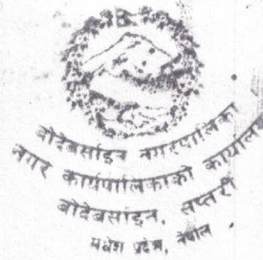 बोदेबर्साइन नगरपालिका
नगर कार्यपालिकाको कार्यालय
बोदेबर्साइन, सप्तरी
मधेश प्रदेश, नेपाल